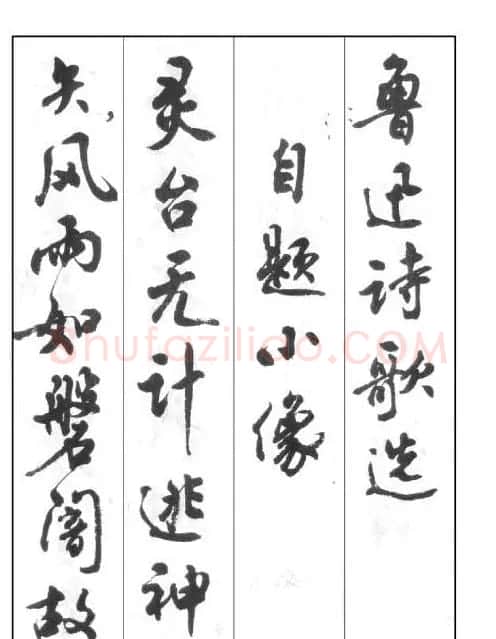 鲁迅诗歌选
自题小像
灵台无计逃神
矢风雨如磐闇故
Shufaziliao.COM